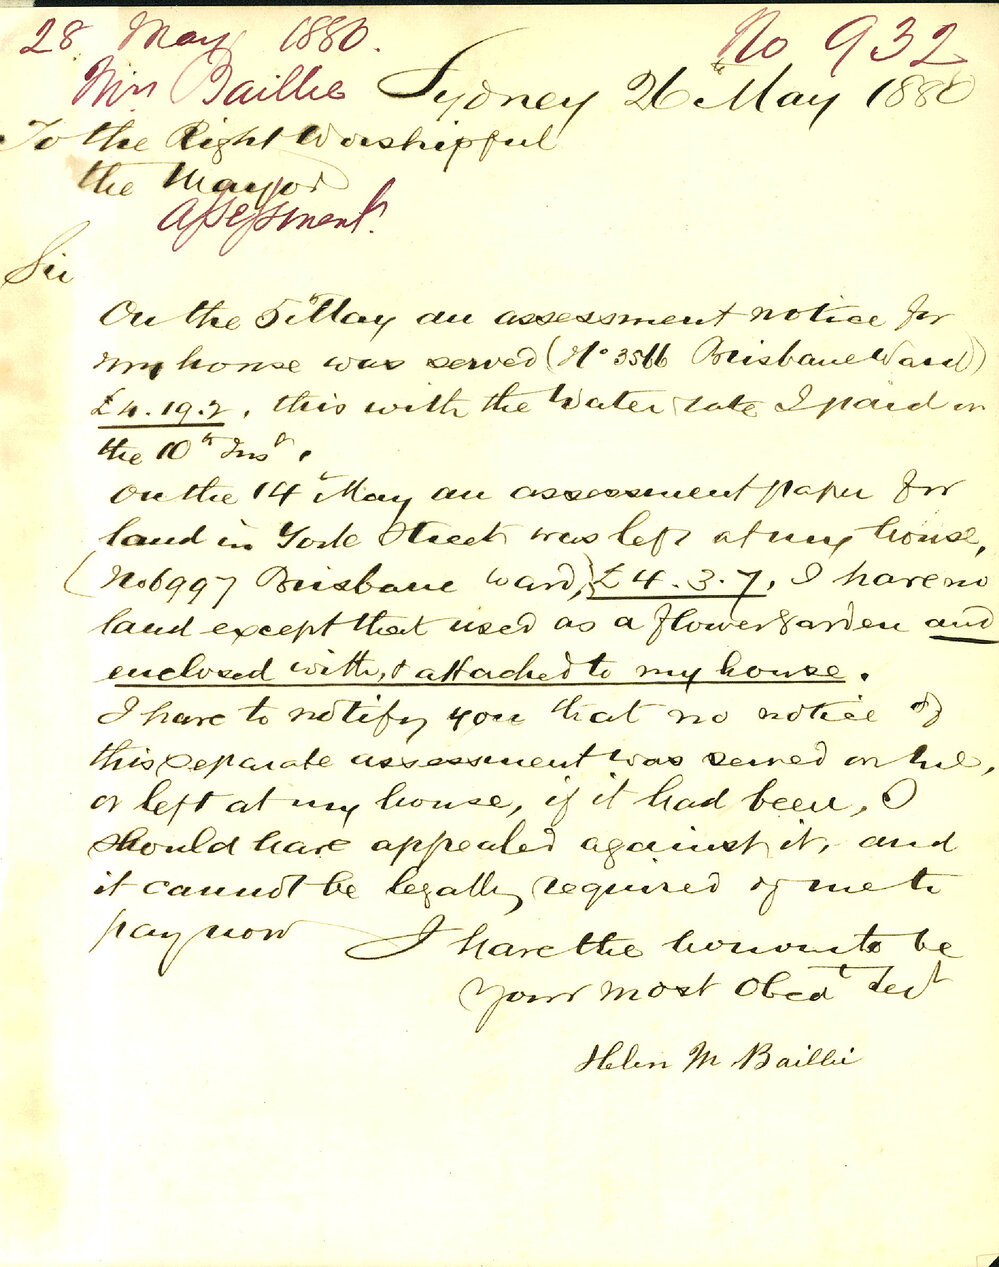 28 May 1880. No 932
Miss Baillie Sydney 26th May 1880
To the Right Worshipful
the Mayor
Assessment.
Sir
On the 5th May an assessment notice for
my house was served (No 3566 Brisbane Ward)
£4.19.2, this with the Water rate I paid on
the 10th Inst.
On the 14th May an assessment paper for
land in York Street was left at my house,
(No 6997 Brisbane Ward,) £4.3.7, I have no
land except that used as a flower garden and
enclosed with, & attached to my house.
I have to notify you that no notice of
this separate assessment was served on me,
or left at my house, if it had been, I
should have appealed against it, and
it cannot be legally required of me to
pay now I have the honour to be
Your most Obedt Servt
Helen M Baillie